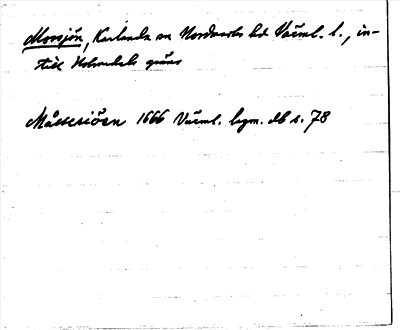 Morsjön, Karlanda sn Nordmarks hd Värml. l., in-
till Holmedals gräns
Måssesiöen 1666 Värml. lagm. db s. 78